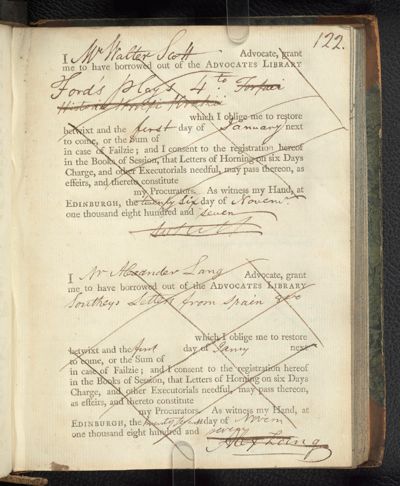 122.
I Mr Walter Scott Advocate, grant
me to have borrowed out of the ADVOCATES LIBRARY
Ford's plays 4to
which I oblige me to restore
betwixt and the first day of January next
to come, or the Sum of
in case of Failzie; and I consent to the registration hereof
in the Books of Session, that Letters of Horning on six Days
Charge, and other Executorials needful, may pass thereon, as
effeirs, and thereto constitute
my Procurators. As witness my Hand, at
EDINBURGH, the twenty six day of Novemr.
one thousand eight hundred and seven
I Mr Alexander Lang Advocate, grant
me to have borrowed out of the ADVOCATES LIBRARY
Southeys Letters from Spain 8vo
which I oblige me to restore
betwixt and the first day of Jany next
to come, or the Sum of
in case of Failzie; and I consent to the registration hereof
in the Books of Session, that Letters of Horning on six Days
Charge, and other Executorials needful, may pass thereon,
as effeirs, and thereto constitute
my Procurators. As witness my Hand, at
EDINBURGH, the day of Novem
one thousand eight hundred and
Alex Lang